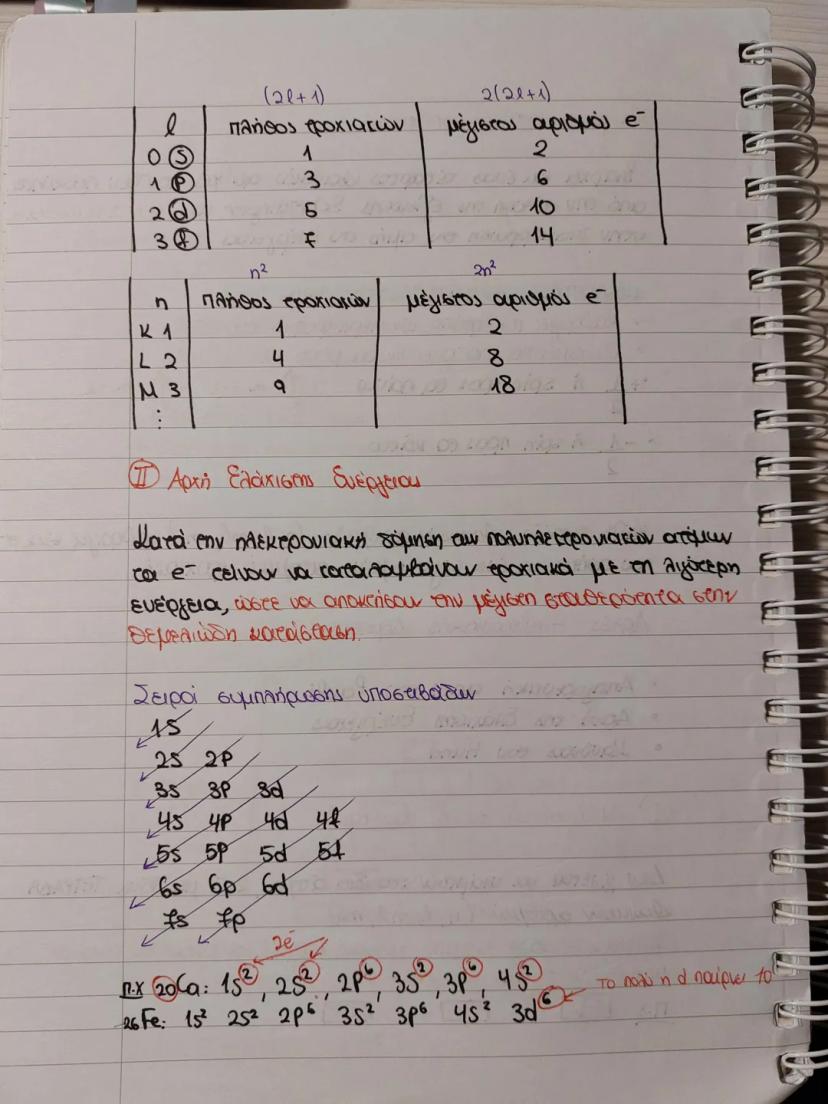 (2l+1) 2(2l+1)
l πλήθος τροχιακών μέγιστος αριθμός e⁻
0 s 1 2
1 p 3 6
2 d 5 10
3 f 7 14
n² 2n²
n πλήθος τροχιακών μέγιστος αριθμός e⁻
K 1 1 2
L 2 4 8
M 3 9 18
⋮
II Αρχή Ελάχιστης Ενέργειας
Κατά την ηλεκτρονιακή δόμηση των πολυηλεκτρονιακών ατόμων
τα e⁻ τείνουν να καταλαμβάνουν τροχιακά με τη λιγότερη
ενέργεια, ώστε να αποκτήσουν την μέγιστη σταθερότητα στην
θεμελιώδη κατάσταση.
Σειρά συμπλήρωσης υποστιβάδων
1s
2s 2p
3s 3p 3d
4s 4p 4d 4f
5s 5p 5d 5f
6s 6p 6d
7s 7p
2e⁻
π.χ 20Ca: 1s², 2s², 2p⁶, 3s², 3p⁶, 4s² Το πολύ η d παίρνει 10
26Fe: 1s² 2s² 2p⁶ 3s² 3p⁶ 4s² 3d⁶